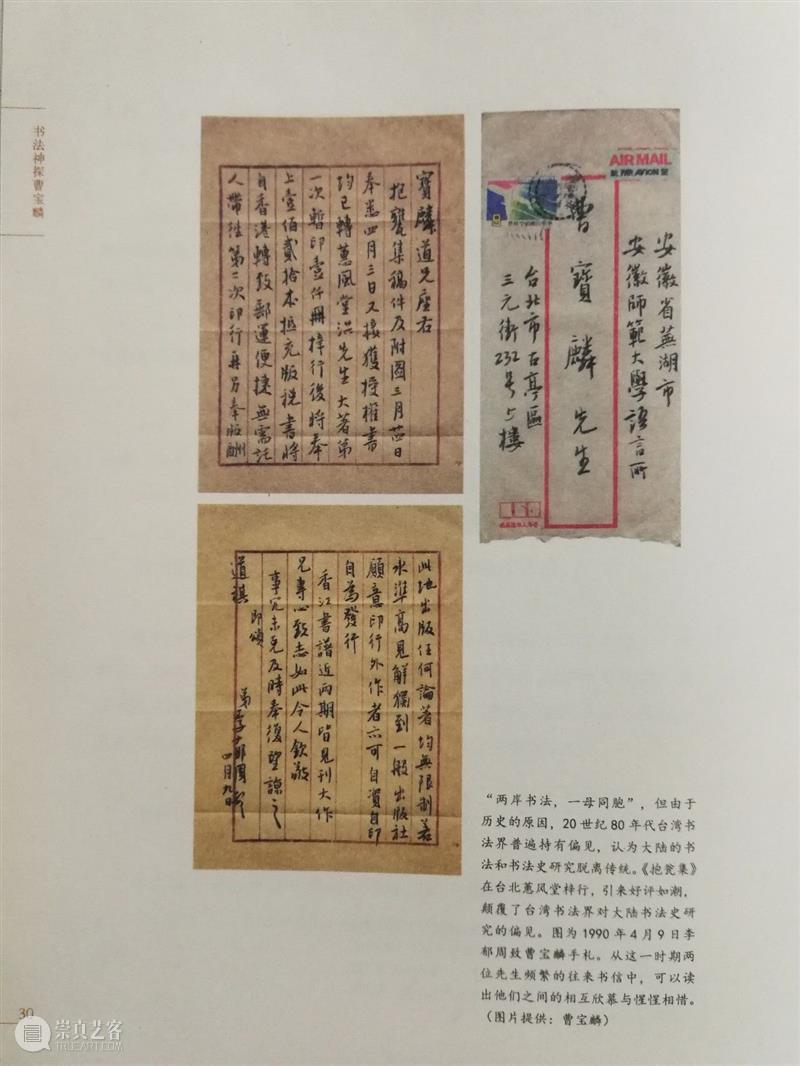 书法神探曹宝麟
寶麟道兄座右
抱甕集稿件及附圖三月廿日
奉悉四月三日又接獲授權書
均已轉蕙風堂洪先生大著第
一次暫印壹仟冊梓行後將奉
上壹佰貳拾本抵充版稅書將
自香港轉致郵運便捷無需託
人帶往第二次印行再另奉版酬
此地出版任何論著均無限制若
水準高見解獨到一般出版社
願意印行外作者亦可自資自印
自為發行
香江書譜近兩期皆見刊大作
兄專心致志如此令人欽敬
事冗未克及時奉復望諒之
即頌
道祺
弟
四月九日
AIR MAIL
PAR AVION
安徽省蕪湖市
安徽師範大學語言所
曹寶麟先生
台北市古亭區
三元街232号5樓
“两岸书法，一母同胞”，但由于
历史的原因，20世纪80年代台湾书
法界普遍持有偏见，认为大陆的书
法和书法史研究脱离传统。《抱瓮集》
在台北蕙风堂梓行，引来好评如潮，
颠覆了台湾书法界对大陆书法史研
究的偏见。图为1990年4月9日李
郁周致曹宝麟手札。从这一时期两
位先生频繁的往来书信中，可以读
出他们之间的相互欣慕与惺惺相惜。
（图片提供：曹宝麟）
30
崇真艺客